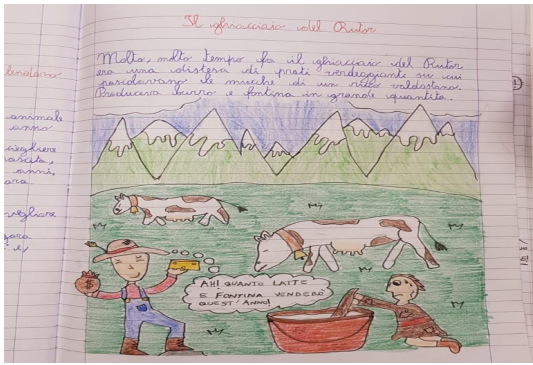 Il ghiacciaio del Rutor
Molto, molto tempo fa il ghiacciaio del Rutor
era una distesa di prati verdeggiante su cui
pascolavano le mucche di un ricco valdostano.
Produceva burro e fontina in grande quantità.
AH! QUANTO LATTE
E FONTINA VENDERÒ
QUEST'ANNO!
$
animale
anno